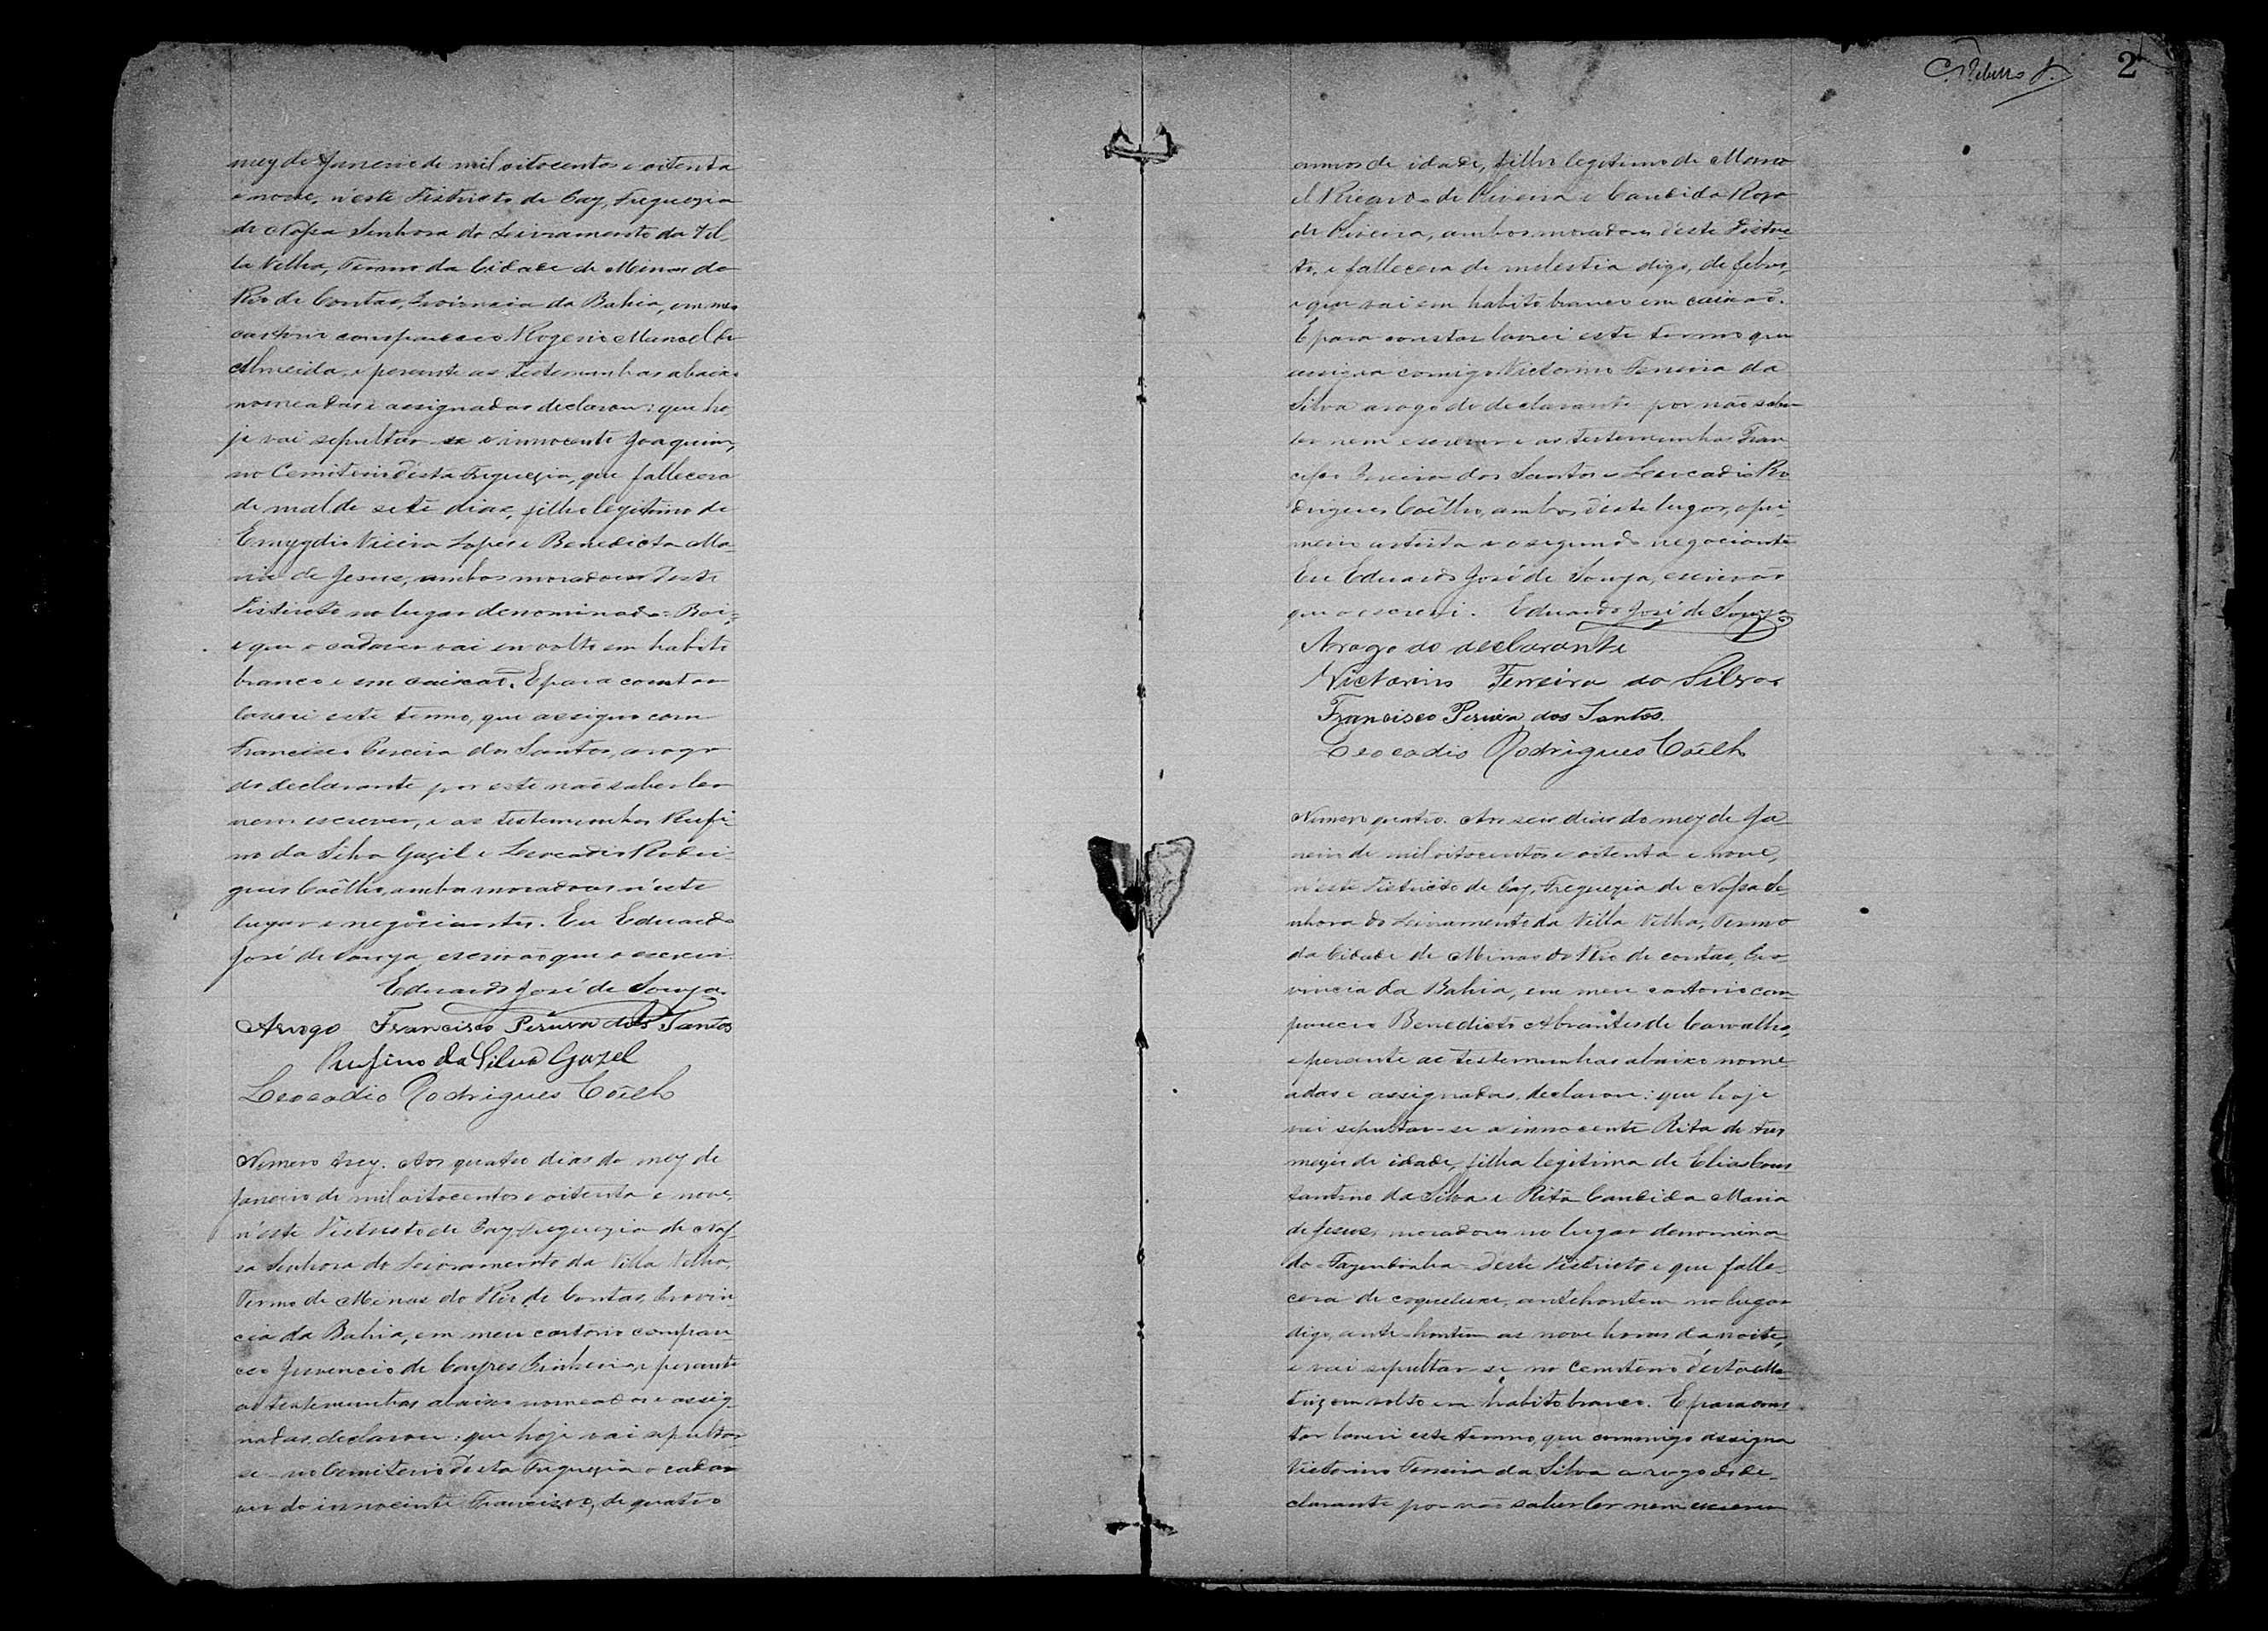 mez de Janeiro de mil oitocentos e oitenta
e nove, n'este Districto de Paz, Freguezia
de Nossa Senhora do Livramento da Vil-
la Velha, Termo da Cidade de Minas do
Rio de Contas, Provincia da Bahia, em meu
cartorio compareceo Rogerio Manoel de
Almeida, e perante as testemunhas abaixo
nomeadas e assignadas declarou: que ho
je vai sepultar-se o innocente Joaquim,
no Cemiterio d'esta Freguezia, que fallecera
de mal de sete dias, filho legitimo de
Emygdio Vieira Lopes e Benedicta Ma-
ria de Jesus, ambos moradores deste
Districto no lugar denominado:
e que o cadaver vai envolto em habito
branco e em caixaõ. E para constar
lavrei este termo, que assigno com
Francisco Pereira dos Santos, arogo
do declarante por este naõ saber ler
nem escrever, e as testemunhas Rufi
no da Silva Gazil e Leocadio Rodri-
gues Coêlho, ambos moradores n'este
lugar e negociantes. Eu Eduardo
José de Souza, escrivaõ que o escrevi.
Eduardo José de Souza
Arrogo Francisco Pereira dos Santos
Rufino da Silva Gazel
Leocadio Rodrigues Coêlho
Numero trez. Aos quatro dias do mez de
Janeiro de mil oitocentos e oitenta e nove,
n'este Districto de Paz, Freguezia de Nos-
sa Senhora do Livramento da Villa Velha,
Termo de Minas do Rio de Contas, Provin-
cia da Bahia, em meu cartorio compare-
ceo Juvencio de Cayres Pinheiro, e perante
as testemunhas abaixo nomeadas e assig-
nadas, declarou: que hoje vai sepultar-
se no Cemiterio d'esta Freguezia o cada-
ver do innocente Francisco, de quatro
C. Rebello J. 2
annos de idade, filho legitimo de Mano
el Ricardo de Oliveira e Candida Rosa
de Oliveira, ambos moradores d'este Distric-
to, e fallecera de molestia digo, de febre,
e que vai em habito branco em caixaõ.
E para constar lavrei este termo que
assigna comigo Victorino Ferreira da
Silva arogo do declarante por naõ saber
ler nem escrever e as testemunhas Fran
cisco Pereira dos Santos e Leocadio Ro
drigues Coêlho, ambos d'este lugar, o pri-
meiro artista e o segundo negociante
Eu Eduardo José de Souza, escrivaõ
que o escrevi. Eduardo José de Souza
Arogo do declarante
Victorino Ferreira da Silva
Francisco Pereira dos Santos.
Leocadio Rodrigues Coêlho
Numero quatro. Aos seis dias do mez de Ja-
neiro de mil oitocentos e oitenta e nove,
n'este Districto de Paz, Freguezia de Nossa Se-
nhora do Livramento da Villa Velha, Termo
da Cidade de Minas do Rio de Contas, Pro-
vincia da Bahia, em meu cartorio com-
pareceo Benedicto Abrantes de Carvalho,
e perante as testemunhas abaixo nome-
adas e assignadas, declarou: que hoje
vai sepultar-se a innocente Rita de tres
mezes de idade, filha legitima de Elias Cons
tantino da Silva e Rita Candida Maria
de Jesus, moradores no lugar denomina-
do-Fazendinha-d'este Districto e que falle-
cera de coqueluxe, antehontem no lugar
digo, ante-hontem as nove horas da noite,
e vai sepultar-se no Cemiterio d'esta Ma-
triz em volto em habito branco. E para cons
tar lavrei este termo, que commigo assigna
Victorino Ferreira da Silva a rogo do de-
clarante por naõ saber ler nem escrever